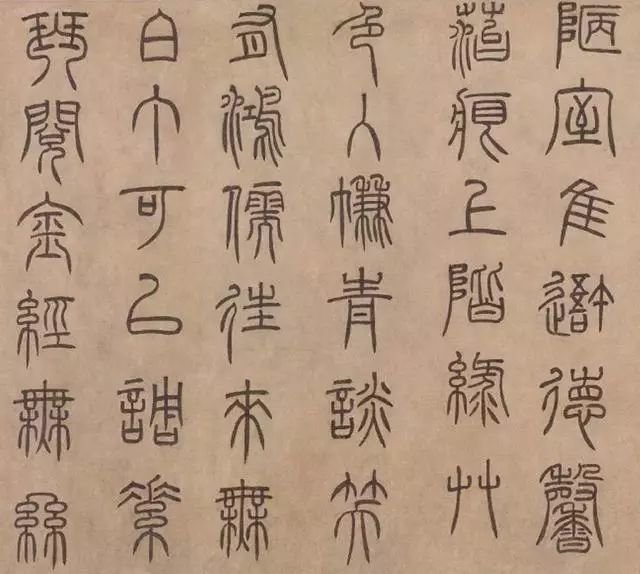 陋室隹吾德馨
菭痕上階綠艸
色入㡘青談笑
有鴻儒往來無
白丁可以調素
琴閱金經無絲